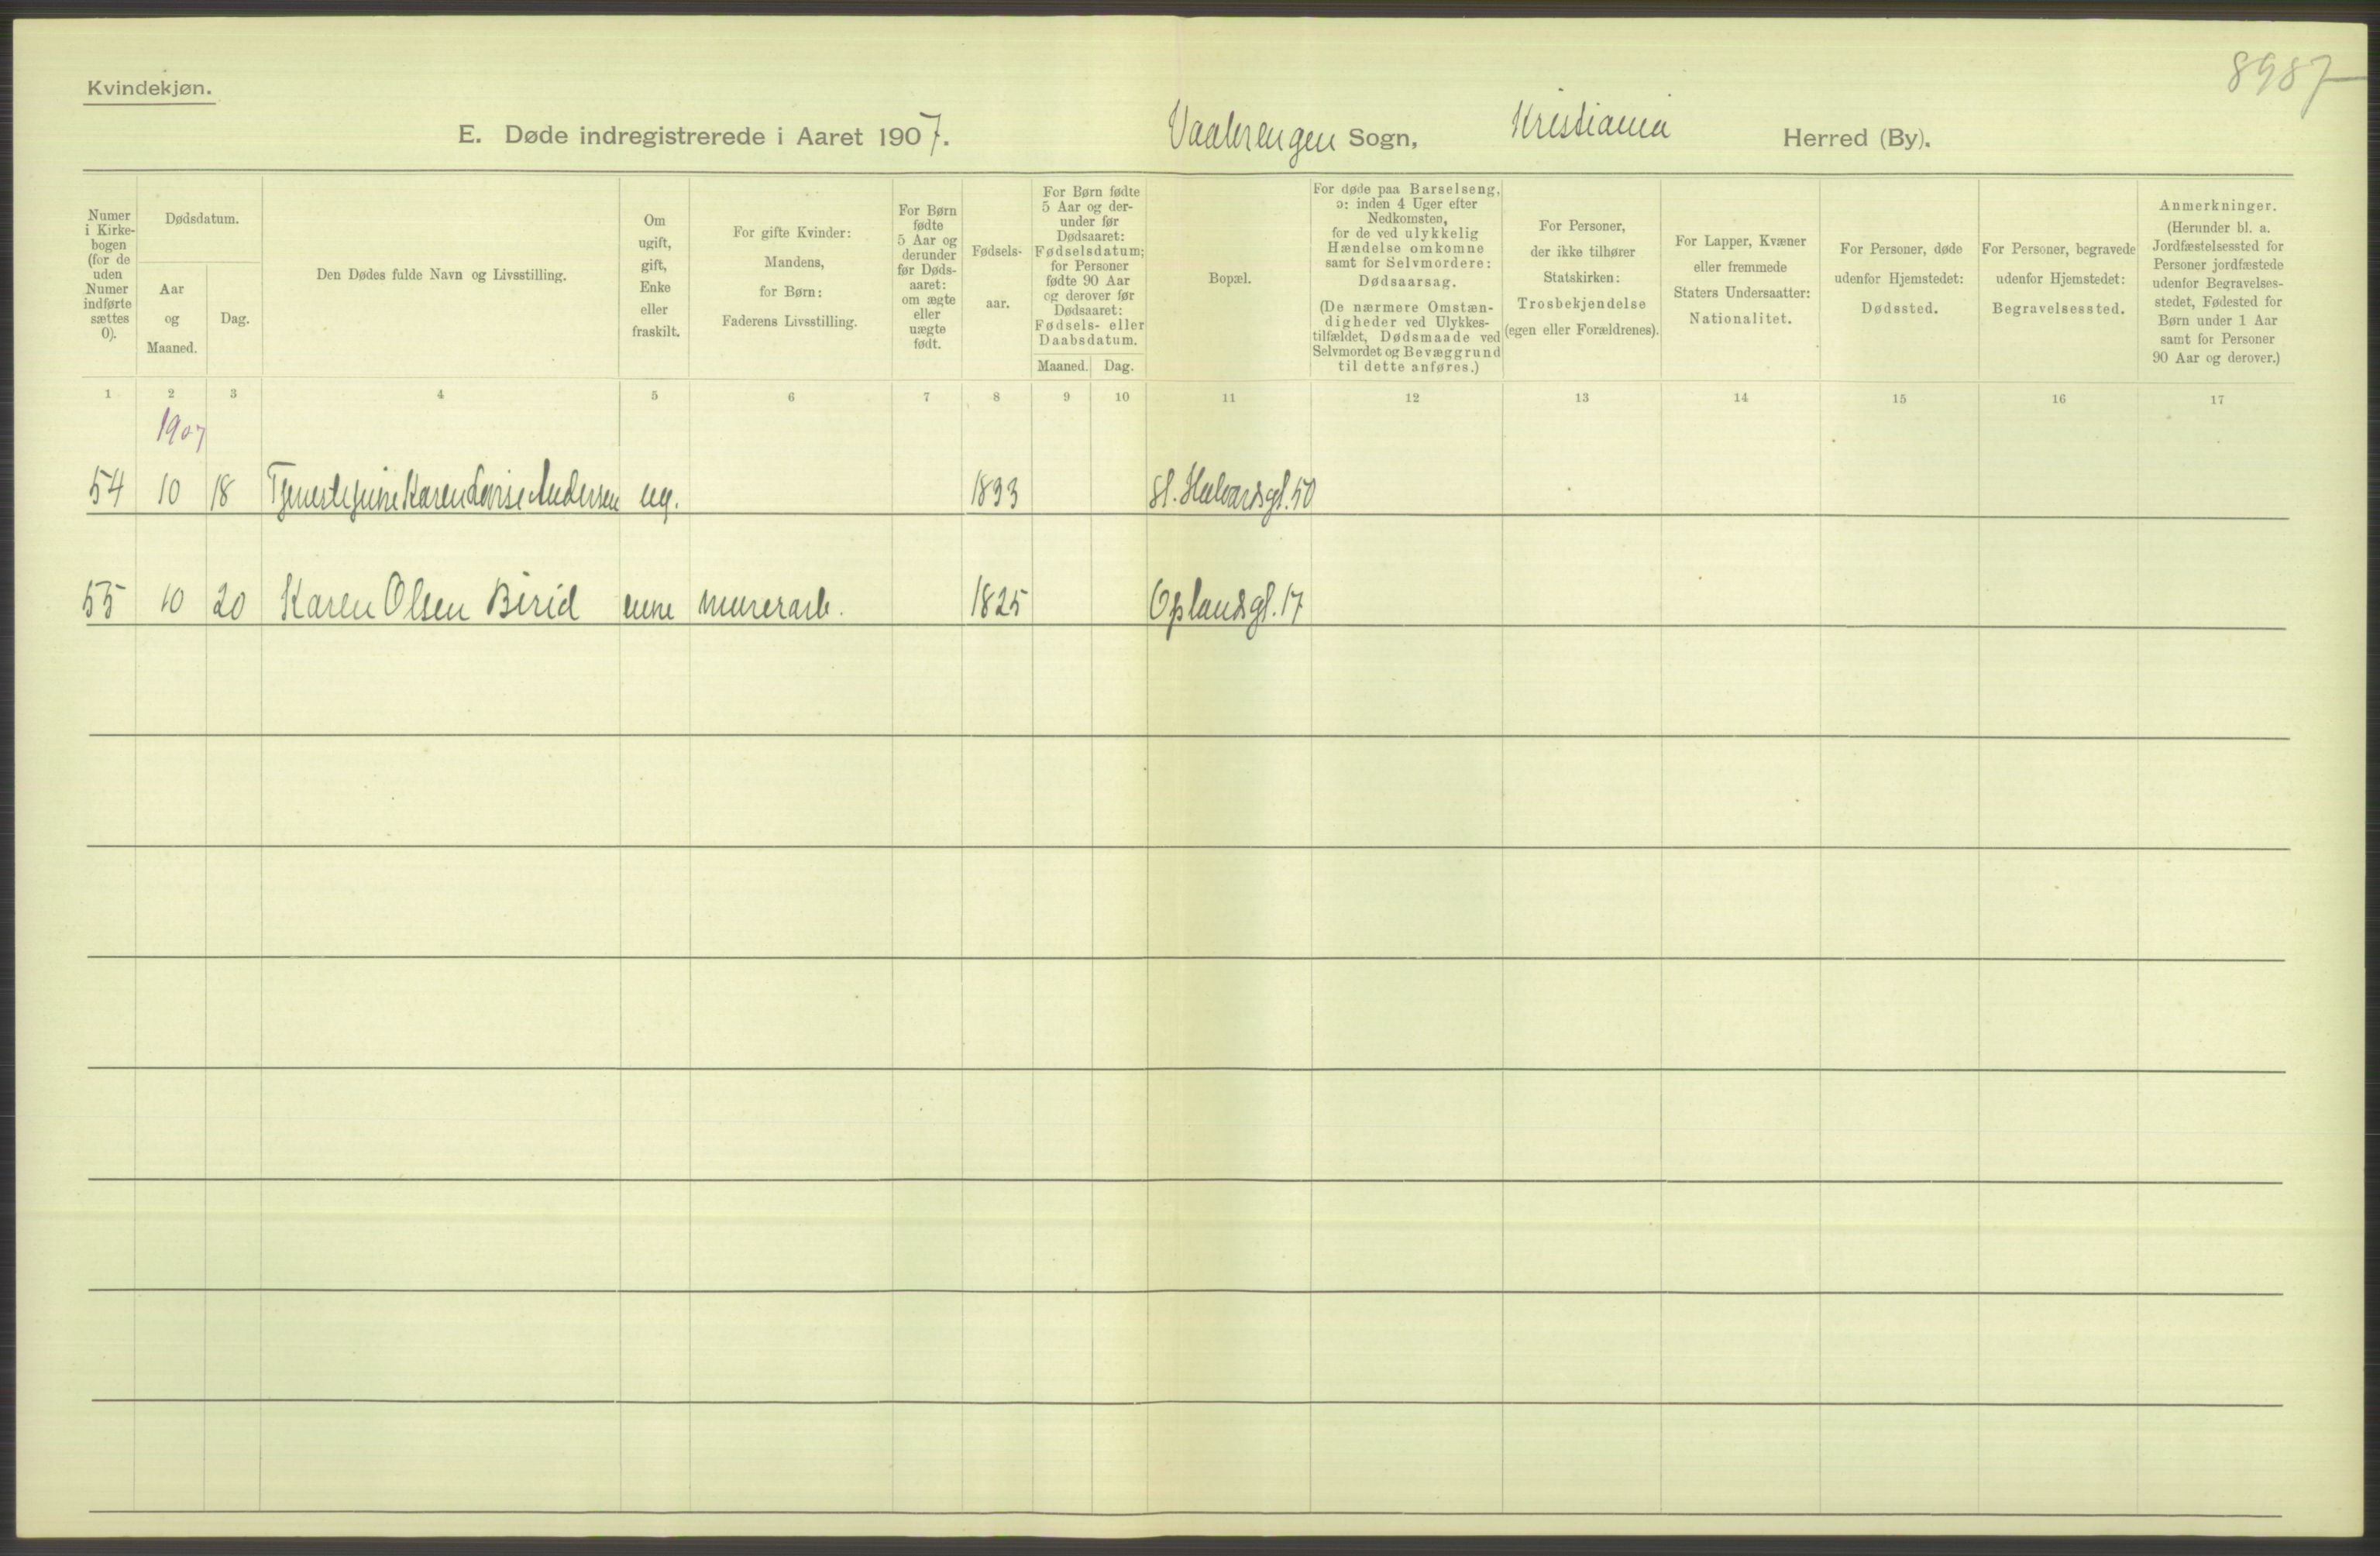 8987
Kvindekjøn.
E. Døde indregistrerede i Aaret 1907. Vaalerengen Sogn, Kristiania Herred (By).
Numer i Kirke-bogen (for de uden Numer indførte sættes 0).
Dødsdatum.
Aar og Maaned.
Dag.
Den Dødes fulde Navn og Livsstilling.
Om ugift, gift, Enke eller fraskilt.
For gifte Kvinder: Mandens, for Børn: Faderens Livsstilling.
For Børn fødte 5 Aar og derunder før Døds-aaret: om ægte eller uægte født.
Fødsels-aar.
For Børn fødte 5 Aar og der-under før Dødsaaret: Fødselsdatum; for Personer fødte 90 Aar og derover før Dødsaaret: Fødsels- eller Daabsdatum.
Maaned. Dag.
Bopæl.
For døde paa Barselseng, ɔ: inden 4 Uger efter Nedkomsten, for de ved ulykkelig Hændelse omkomne samt for Selvmordere: Dødsaarsag. (De nærmere Omstæn-digheder ved Ulykkes-tilfældet, Dødsmaade ved Selvmordet og Bevæggrund til dette anføres.)
For Personer, der ikke tilhører Statskirken: Trosbekjendelse (egen eller Forældrenes).
For Lapper, Kvæner eller fremmede Staters Undersaatter: Nationalitet.
For Personer, døde udenfor Hjemstedet: Dødssted.
For Personer, begravede udenfor Hjemstedet: Begravelsessted.
Anmerkninger. (Herunder bl. a. Jordfæstelsessted for Personer jordfæstede udenfor Begravelses-stedet, Fødested for Børn under 1 Aar samt for Personer 90 Aar og derover.)
1 2 3 4 5 6 7 8 9 10 11 12 13 14 15 16 17
1907
54 10 18 Tjenestepike Karen Lovise Andersen ug. 1833 St. Halvardsgt. 50
55 10 20 Karen Olsen Birid enke murerarb. 1825 Oplandsgt. 17